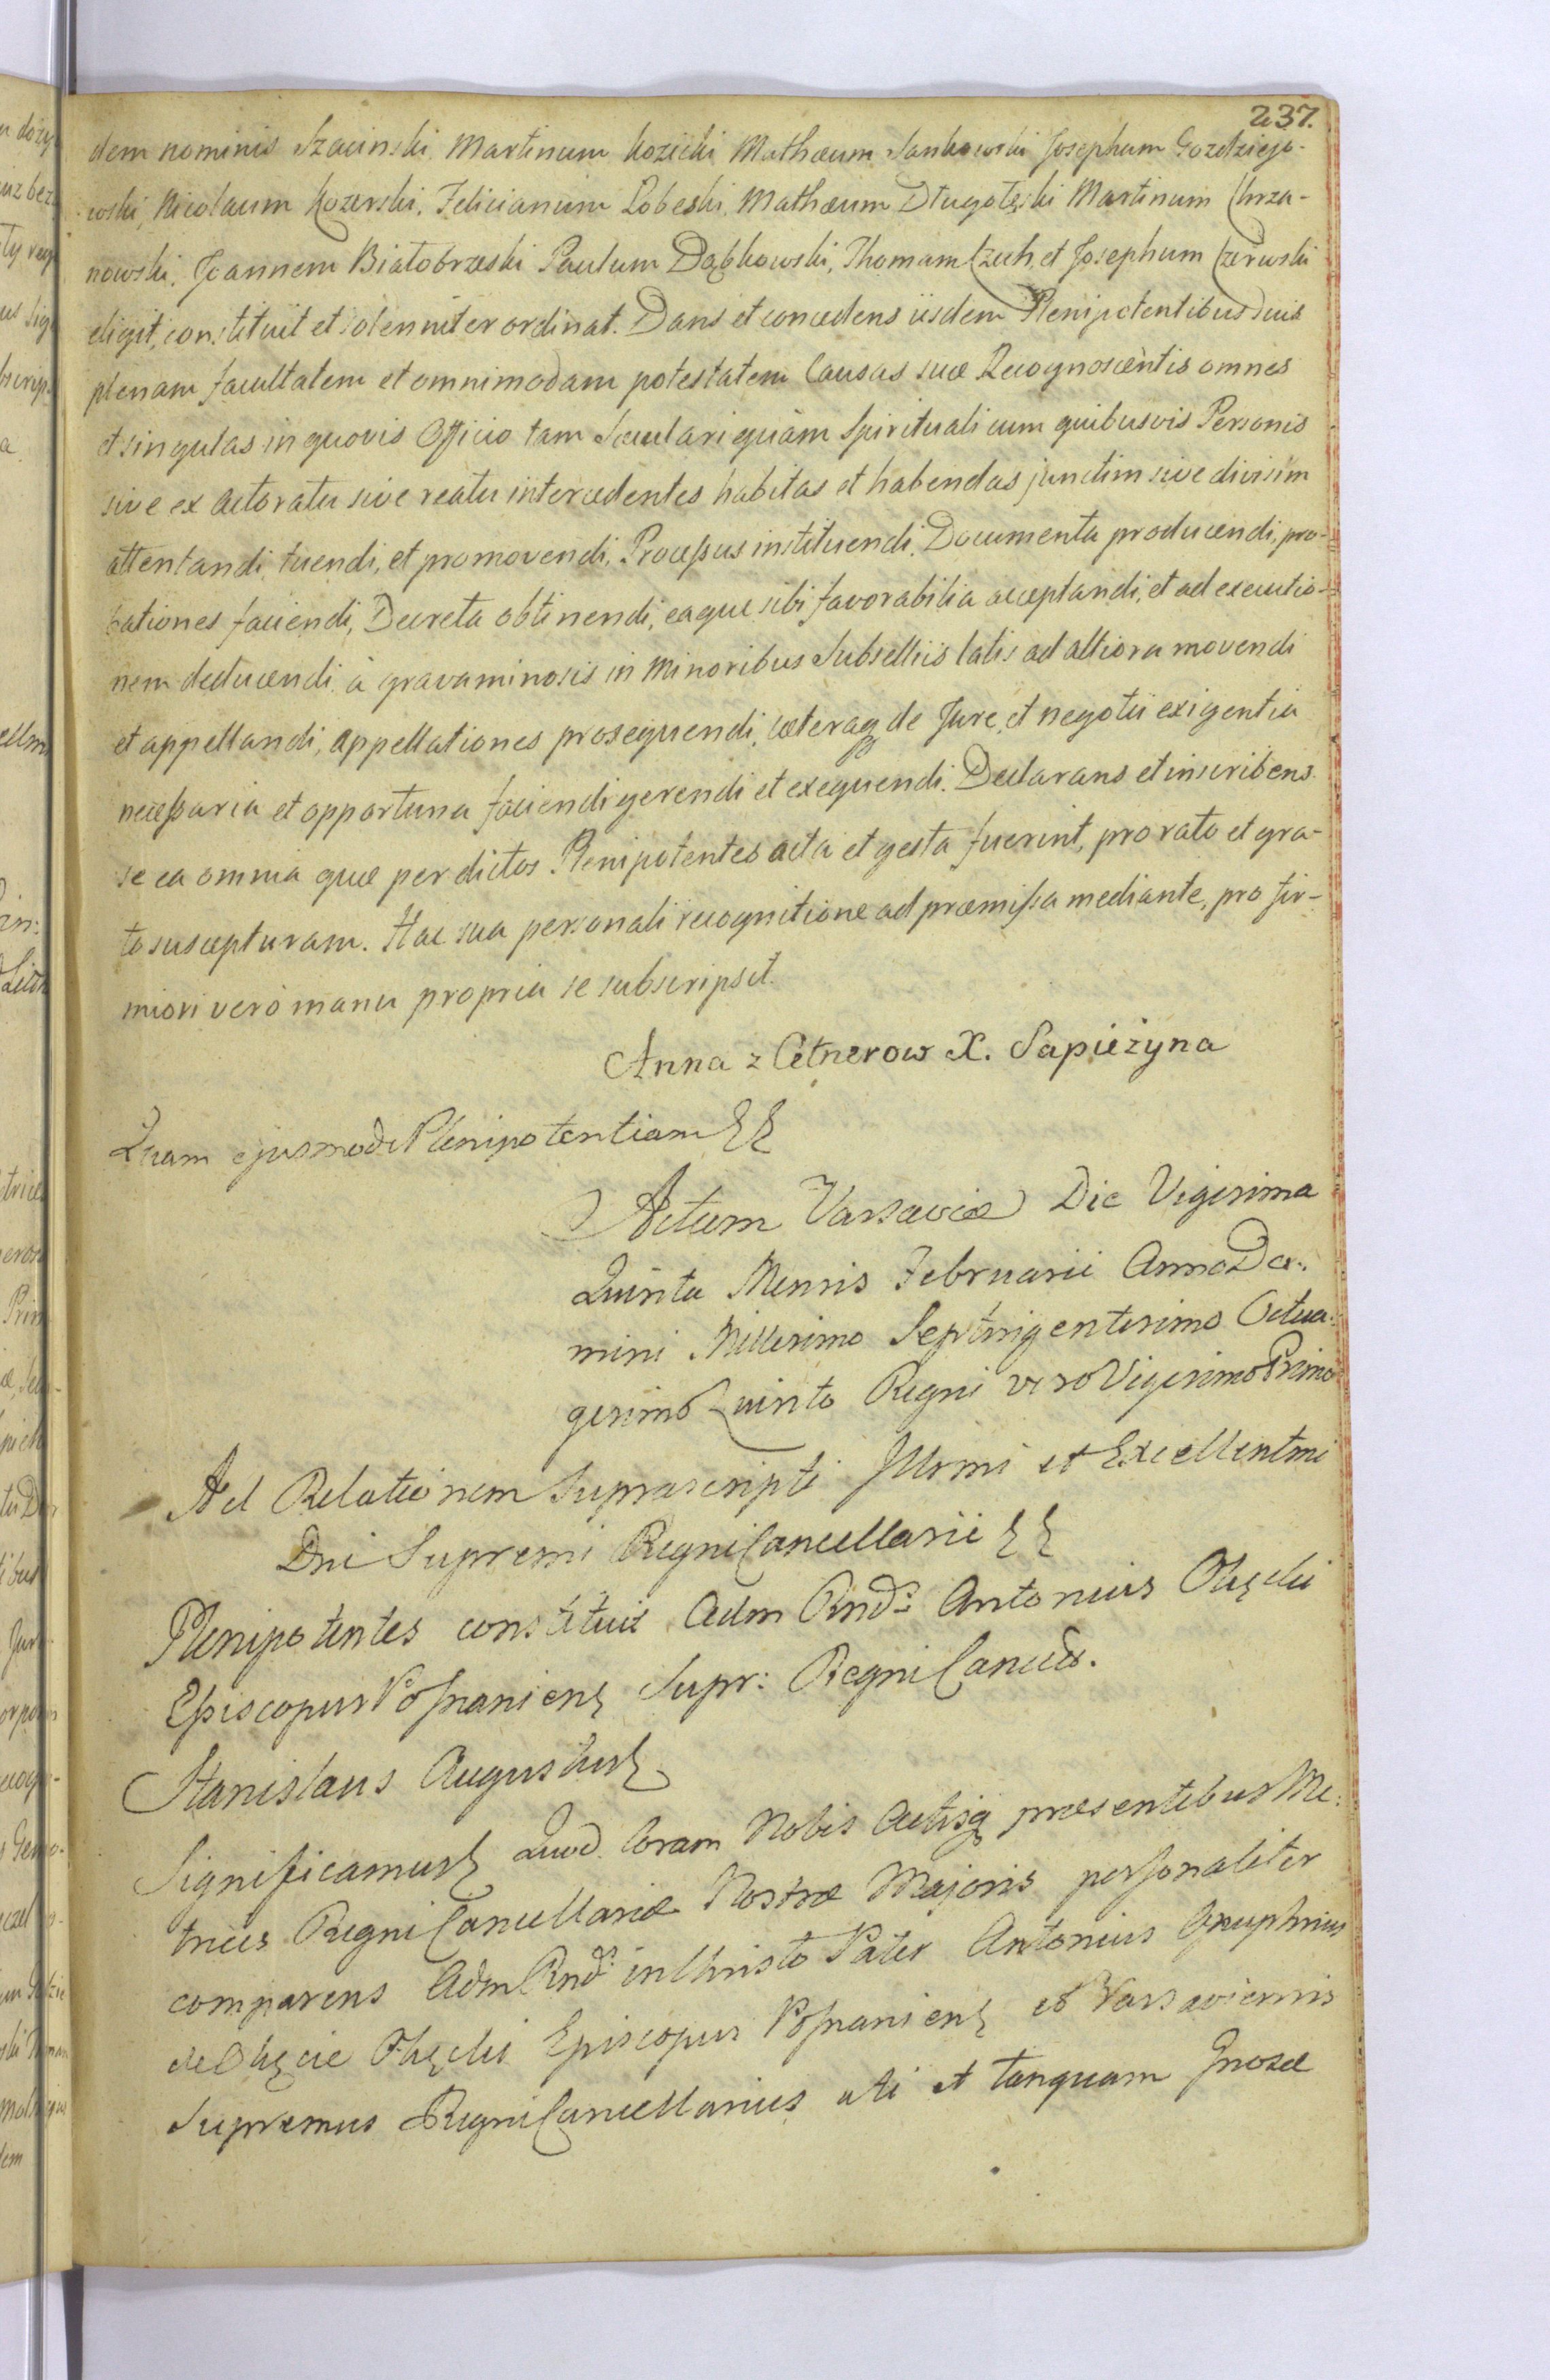 237.
dem nominis Szacinski, Martinum Kozicki Mathæum Jankowski Josephum Gozdziejo-
wski, Nicolaum Kozerski, Felicianum Lobeski, Mathæum Długołęski Martinum Chrza-
nowski, Joannem Białobrzeski Paulum Dąbkowski, Thomam Czuh, et Josephum Czerwski
eligit, constituit et solenniter ordinat. Dans et concedens iisdem Plenipotentibus suis
plenam facultatem et omnimodam potestatem Causas suæ Recognoscentis omnes
et singulas in quovis Officio tam Sæculari quàm Spirituali cum quibusvis Personis
sive ex actoratu sive reatu intercedentes habitas et habendas junctim sive divisim
attentandi, tuendi, et promovendi, Processus instituendi, Documenta producendi, pro-
bationes faciendi, Decreta obtinendi, eaque sibi favorabilia acceptandi, et ad executio-
nem deducendi, à gravaminosis in minoribus Subselliis latis ad altiora movendi
et appellandi, appellationes prosequendi, cæteraq de Jure, et negotii exigentia
necessaria et opportuna faciendi gerendi et exequendi. Declarans et inscribens
se ea omnia quæ per dictos Plenipotentes acta et gesta fuerint, pro rato et gra-
to suscepturam. Hac sua personali recognitione ad præmissa mediante, pro fir-
miori verò manu propria se subscripsit.
Anna z Cetnerow X. Sapieżyna
Quam ejusmodi Plenipotentiam
Actum Varsaviæ Die Vigesima
Quinta Mensis Februarii Anno Do-
mini Millesimo Septingentesimo Octua-
gesimo Quinto Regni vero Vigesimo Primo
Ad Relationem Suprascripti Illrmi et Excellentmi
Dni Supremi Regni Cancellarii
Plenipotentes constituit Adm Rnds Antonius Okęcki
Episcopus Posnaniens Supr: Regni Cancell.
Stanislaus Augustus
Significamus Quod Coram Nobis Actisq præsentibus Me-
trices Regni Cancellariæ Nostræ Majoris personaliter
comparens Adm Rnds in Christo Pater Antonius Onuphrius
de Okęcie Okęcki Episcopus Posnaniens et Varsaviensis
Supremus Regni Cancellarius uti et tanquam Gnosæ